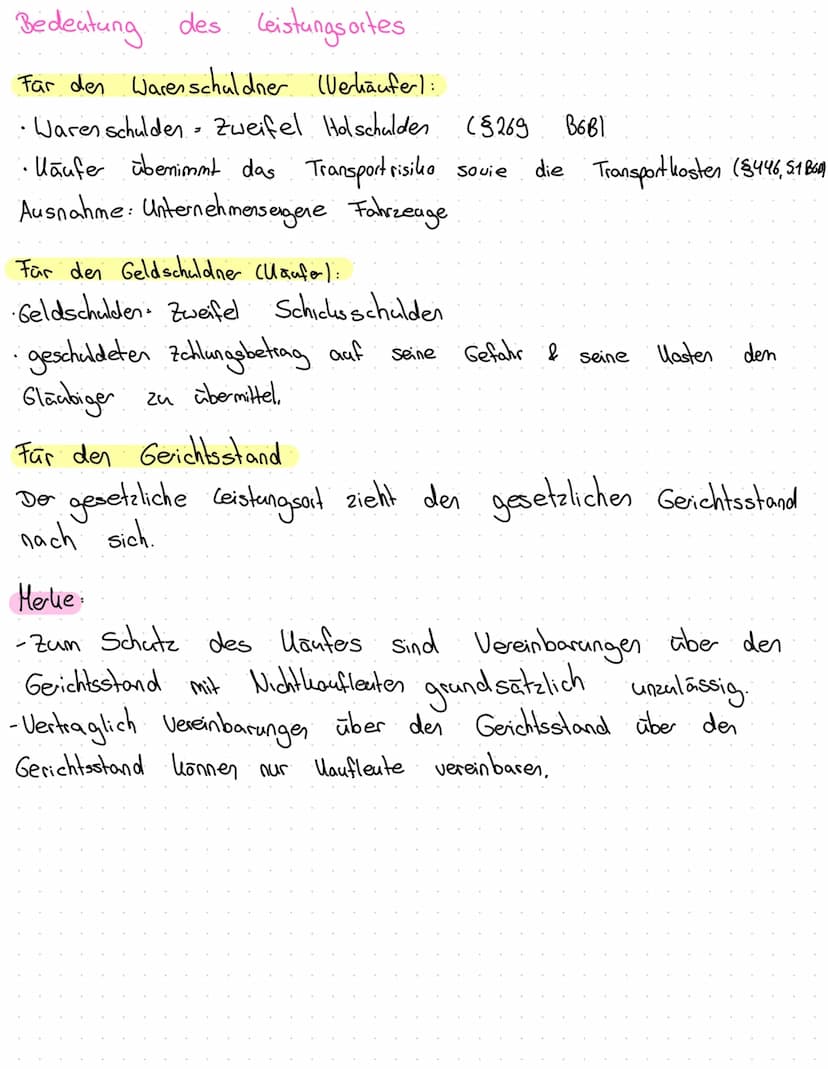 Bedeutung des Leistungsortes
Für den Warenschuldner (Verkäufer):
· Warenschulden = Zweifel Holschulden (§269 BGB)
· Käufer übernimmt das Transportrisiko sowie die Transportkosten (§446, S1 BGB)
Ausnahme: Unternehmenseigene Fahrzeuge
Für den Geldschuldner (Käufer):
· Geldschulden = Zweifel Schicksschulden
· geschuldeten Zahlungsbetrag auf seine Gefahr & seine Kosten dem
Gläubiger zu übermittel.
Für den Gerichtsstand
Der gesetzliche Leistungsort zieht den gesetzlichen Gerichtsstand
nach sich.
Merke:
- Zum Schutz des Käufers sind Vereinbarungen über den
Gerichtsstand mit Nichtkaufleuten grundsätzlich unzulässig.
- Vertraglich Vereinbarungen über den Gerichtsstand über den
Gerichtsstand können nur Kaufleute vereinbaren.